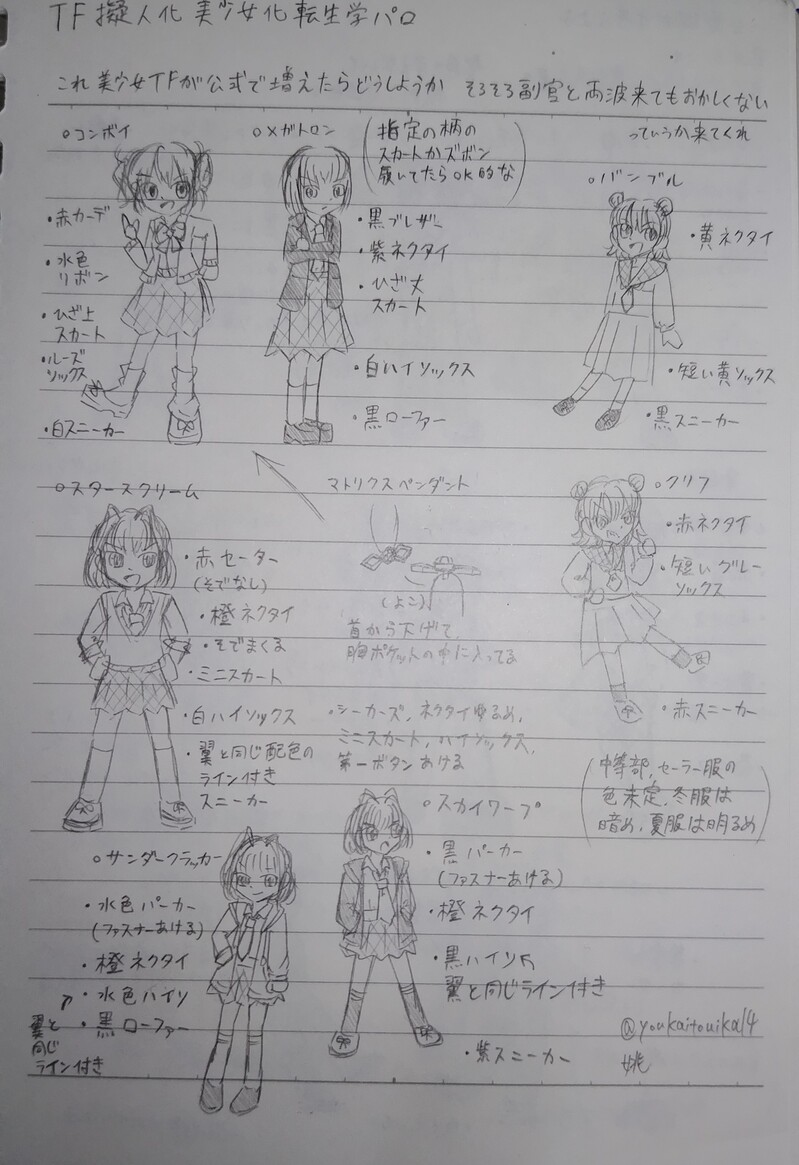 TF擬人化美少女化転生学パロ
これ美少女TFが公式で増えたらどうしようか そろそろ副官と両波来てもおかしくない
っていうか来てくれ
○コンボイ
・赤カーデ
・水色
リボン
・ひざ上
スカート
・ルーズ
ソックス
・白スニーカー
○メガトロン
(指定の柄の
スカートかズボン
履いてたらOK的な)
・黒ブレザー
・紫ネクタイ
・ひざ丈
スカート
・白ハイソックス
・黒ローファー
○バンブル
・黄ネクタイ
・短い黄ソックス
・黒スニーカー
○スタースクリーム
・赤セーター
(そでなし)
・橙ネクタイ
・そでまくる
・ミニスカート
・白ハイソックス
・翼と同じ配色の
ライン付き
スニーカー
マトリクスペンダント
(よこ)
首から下げて
胸ポケットの中に入ってる
・シーカーズ、ネクタイゆるめ、
ミニスカート、ハイソックス、
第一ボタンあける
○クリフ
・赤ネクタイ
・短いグレー
ソックス
・赤スニーカー
(中等部、セーラー服の
色未定、冬服は
暗め、夏服は明るめ)
○サンダークラッカー
・水色パーカー
(ファスナーあける)
・橙ネクタイ
・水色ハイソ
・黒ローファー
翼と
同じ
ライン付き
○スカイワープ
・黒パーカー
(ファスナーあける)
・橙ネクタイ
・黒ハイソ
翼と同じライン付き
・紫スニーカー
@youkaitouika14
姚